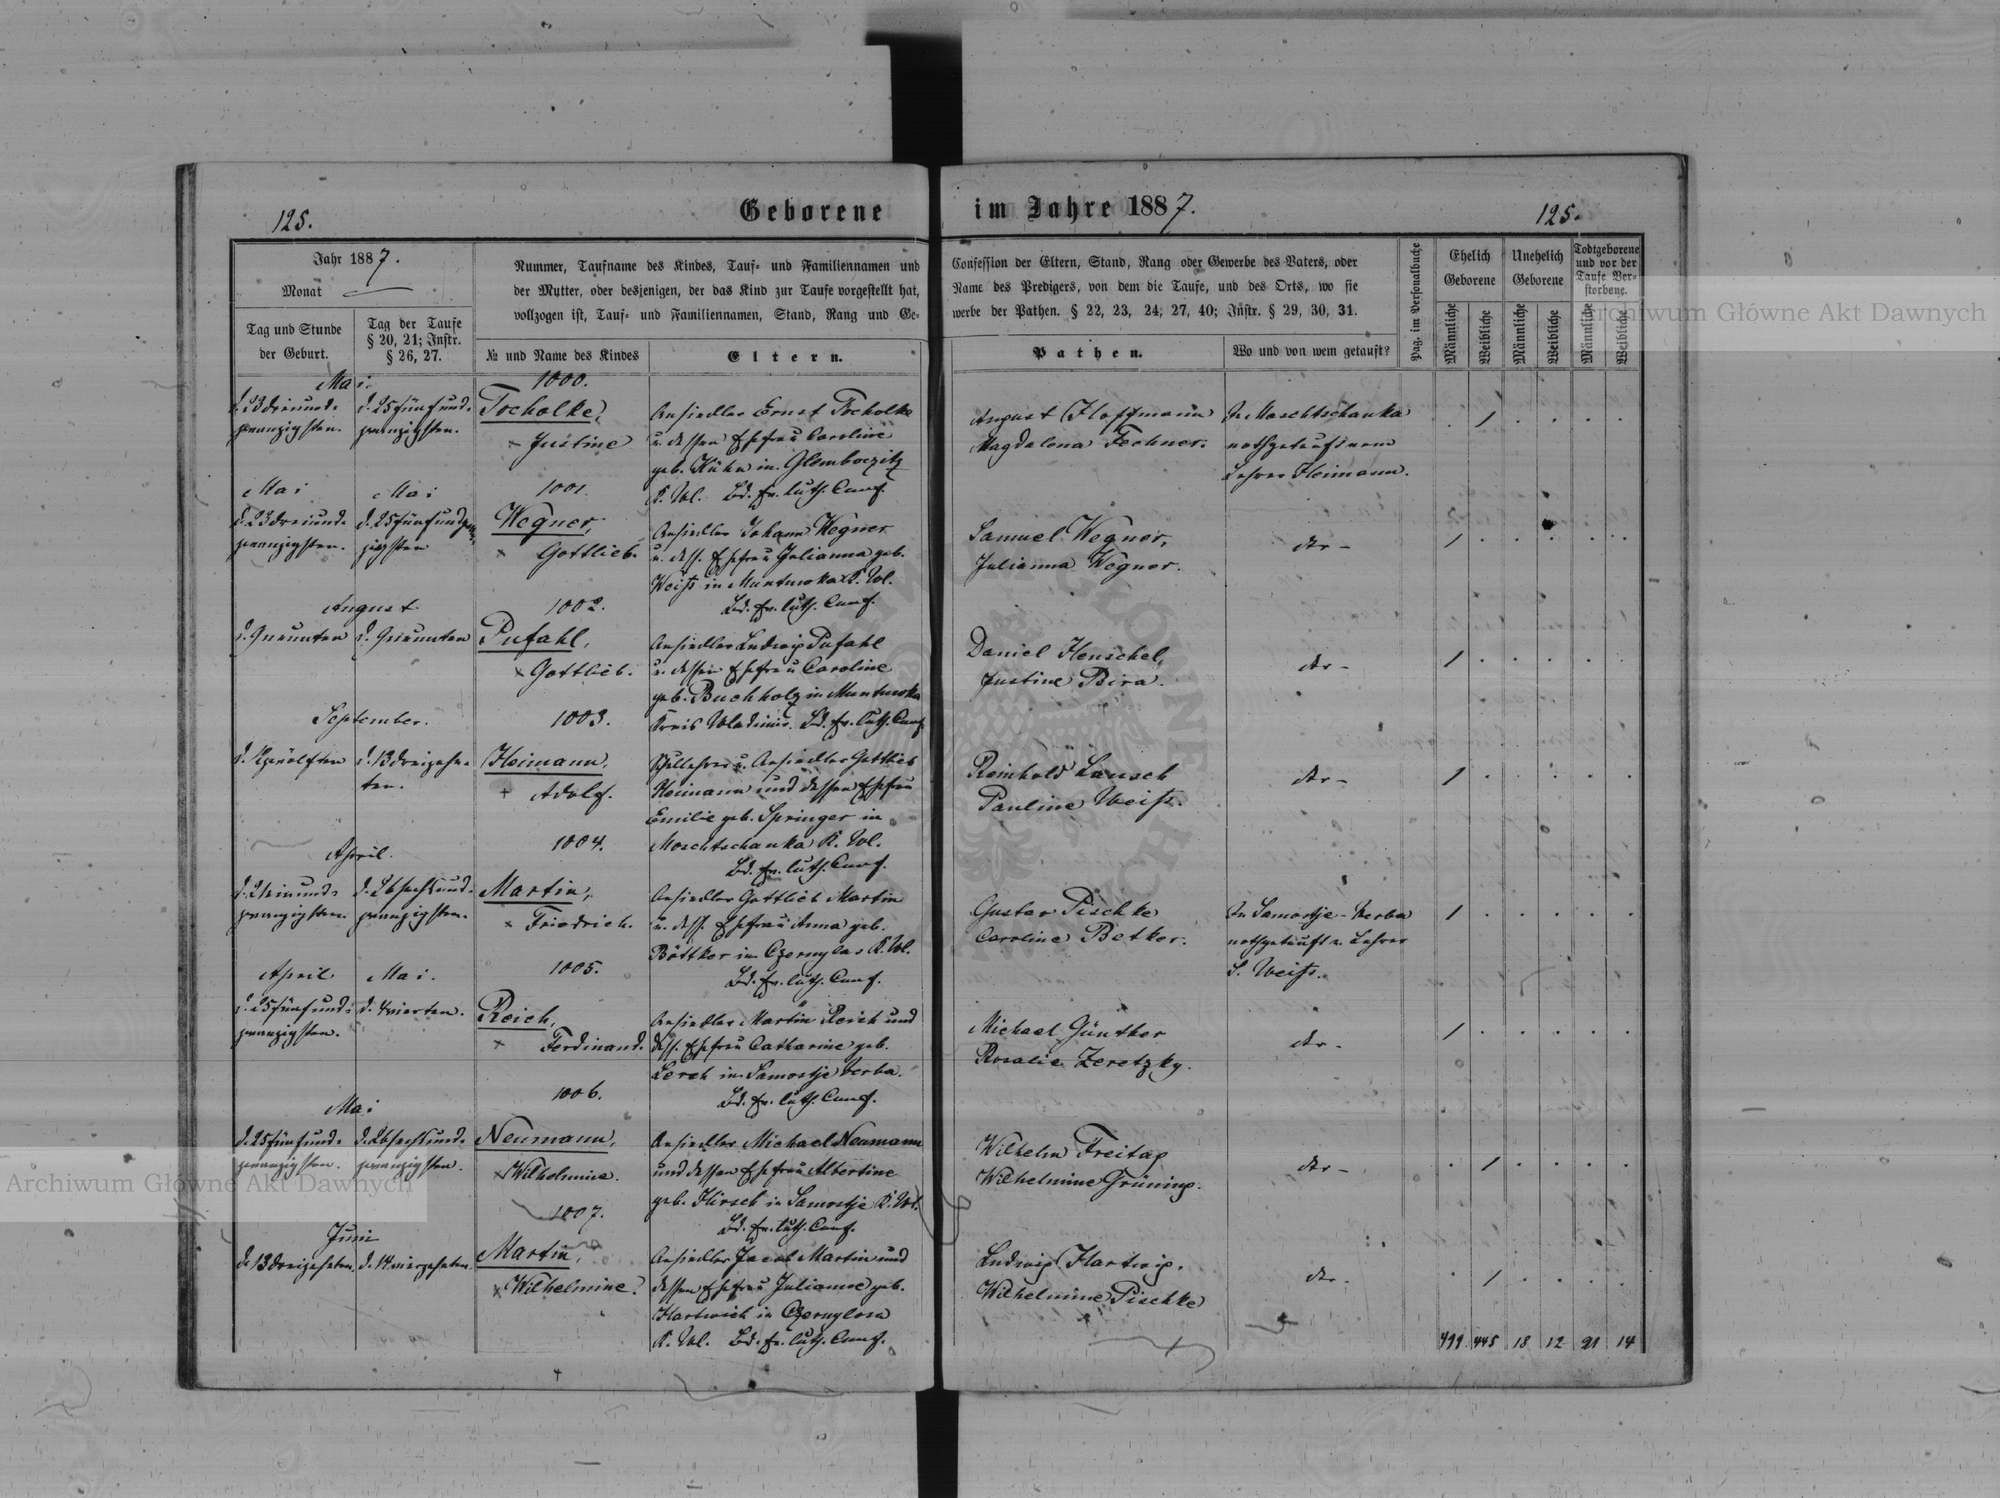 125.
Geborene
im Jahre 1887.
125.
Jahr 1887.
Monat
Tag und Stunde
der Geburt.
Tag der Taufe
§ 20, 21; Instr.
§ 26, 27.
Nummer, Taufname des Kindes, Tauf- und Familiennamen und
der Mutter, oder desjenigen, der das Kind zur Taufe vorgestellt hat,
vollzogen ist, Tauf- und Familiennamen, Stand, Rang und Ge-
№ und Name des Kindes
Eltern.
Confession der Eltern, Stand, Rang oder Gewerbe des Vaters, oder
Name des Predigers, von dem die Taufe, und des Orts, wo sie
werbe der Pathen. § 22, 23, 24; 27, 40; Instr. § 29, 30, 31.
Pathen.
Wo und von wem getauft?
Pag. im Personalbuche
Ehelich
Geborene
Unehelich
Geborene
Todtgeborene
und vor der
Taufe Ver-
storbene.
Männliche
Weibliche
Männliche
Weibliche
Männliche
Weibliche
Mai.
d. 23 dreiund-
zwanzigsten.
d. 25 fünfund-
zwanzigsten.
1000.
Tocholke,
× Justine
Ansiedler Ernst Tocholke
u. dessen Ehefrau Caroline
geb. Kühn in Glemboczitz
K. Wl. Bd. ev. luth. Conf.
August Hoffmann
Magdalena Fechner.
In Moschtschanka
nothgetauft vom
Lehrer Heimann.
1
Mai
d. 23 dreiund-
zwanzigsten.
Mai
d. 25 fünfundzwan-
zigsten
1001.
Wegner,
× Gottlieb.
Ansiedler Johann Wegner
u. dess. Ehefrau Julianna geb.
Weiß in Muntwoka K. Wl.
Bd. ev. luth. Conf.
Samuel Wegner,
Julianna Wegner.
dto -
1
August
d. 9 neunten
d. 9 neunten
1002.
Pufahl,
× Gottlieb.
Ansiedler Ludwig Pufahl
u. dessen Ehefrau Caroline
geb. Buchholz in Muntwoka
Kreis Wladimir. Bd. ev. luth. Conf.
Daniel Henschel,
Justine Bira.
dto -
1
September.
d. 12 zwölften
d. 13 dreizehn-
ten.
1003.
Heimann,
+ Adolf.
Schullehrer u. Ansiedler Gottlieb
Heimann und dessen Ehefrau
Emilie geb. Springer in
Moschtschanka K. Wl.
Bd. ev. luth. Conf.
Reinhold Lausch
Pauline Weiß.
dto -
1
April.
d. 21 einund-
zwanzigsten.
d. 26 sechsund-
zwanzigsten.
1004.
Martin,
× Friedrich.
Ansiedler Gottlieb Martin
u. dess. Ehefrau Anna geb.
Böttker in Czernylas K. Wl.
Bd. ev. luth. Conf.
Gustav Pischke
Caroline Betker.
In Samostje-Verba
nothgetauft v. Lehrer
S. Weiß.
1
April
d. 25 fünfund-
zwanzigsten.
Mai.
d. 4 vierten.
1005.
Reich,
× Ferdinand.
Ansiedler Martin Reich und
dess. Ehefrau Catharine geb.
Lerch in Samostje Verba.
Bd. ev. luth. Conf.
Michael Günther
Rosalie Zeretzky.
dto -
1
Mai
d. 25 fünfund-
zwanzigsten.
d. 26 sechsund-
zwanzigsten.
1006.
Neumann,
× Wilhelmine.
Ansiedler Michael Neumann
und dessen Ehefrau Albertine
geb. Hirsch in Samostje K. Wl.
Bd. ev. luth. Conf.
Wilhelm Freitag
Wilhelmine Grüning.
dto -
1
Juni
d. 13 dreizehnten,
d. 14 vierzehnten.
1007.
Martin,
× Wilhelmine.
Ansiedler Jacob Martin und
dessen Ehefrau Julianne geb.
Hartwich in Czernylosa
K. Wl. Bd. ev. luth. Conf.
Ludwig Hartwig.
Wilhelmine Pischke
dto -
1
499 445 18 12 21 14
Archiwum Główne Akt Dawnych
Archiwum Główne Akt Dawnych